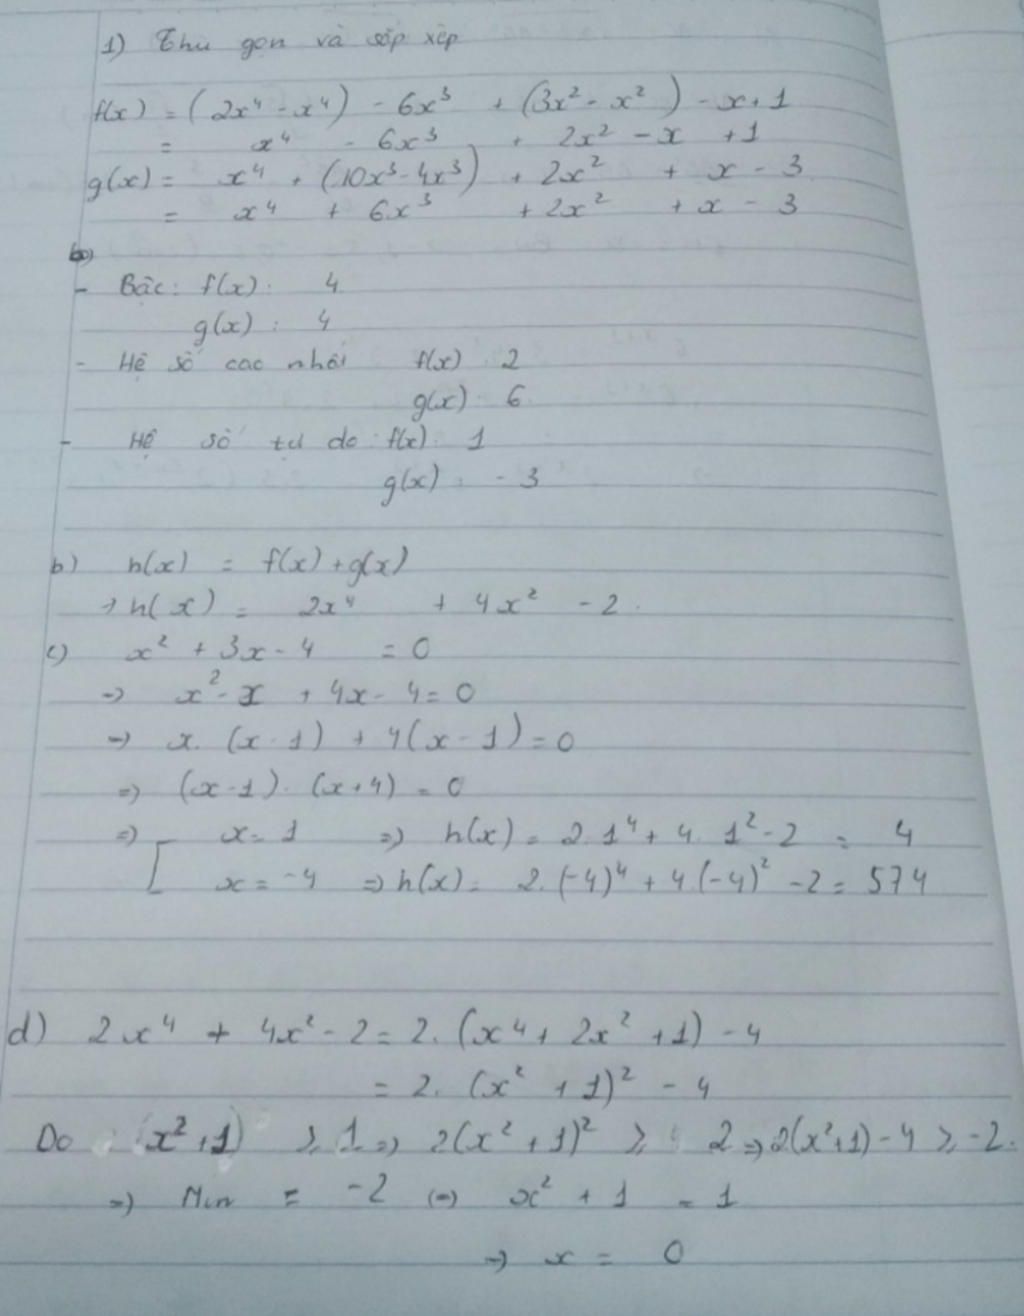 1) Thu gọn và sắp xếp
f(x) = (2x⁴ - x⁴) - 6x³ + (3x² - x²) - x + 1
= x⁴ - 6x³ + 2x² - x + 1
g(x) = x⁴ + (10x³ - 4x³) + 2x² + x - 3
= x⁴ + 6x³ + 2x² + x - 3
b)
- Bậc: f(x): 4
g(x): 4
- Hệ số cao nhất f(x): 2
g(x): 6
- Hệ số tự do: f(x): 1
g(x): -3
b) h(x) = f(x) + g(x)
→ h(x) = 2x⁴ + 4x² - 2.
c) x² + 3x - 4 = 0
→ x² - x + 4x - 4 = 0
⇒ x. (x - 1) + 4(x - 1) = 0
⇒ (x - 1). (x + 4) = 0
⇒ [ x = 1 ⇒ h(x) = 2.1⁴ + 4. 1² - 2 = 4
x = -4 ⇒ h(x) = 2. (-4)⁴ + 4.(-4)² - 2 = 574
d) 2x⁴ + 4x² - 2 = 2. (x⁴ + 2x² + 1) - 4
= 2. (x² + 1)² - 4
Do (x² + 1) ≥ 1 ⇒ 2(x² + 1)² ≥ 2 ⇒ 2(x² + 1) - 4 ≥ -2.
⇒ Min = -2 (=) x² + 1 = 1
⇒ x = 0